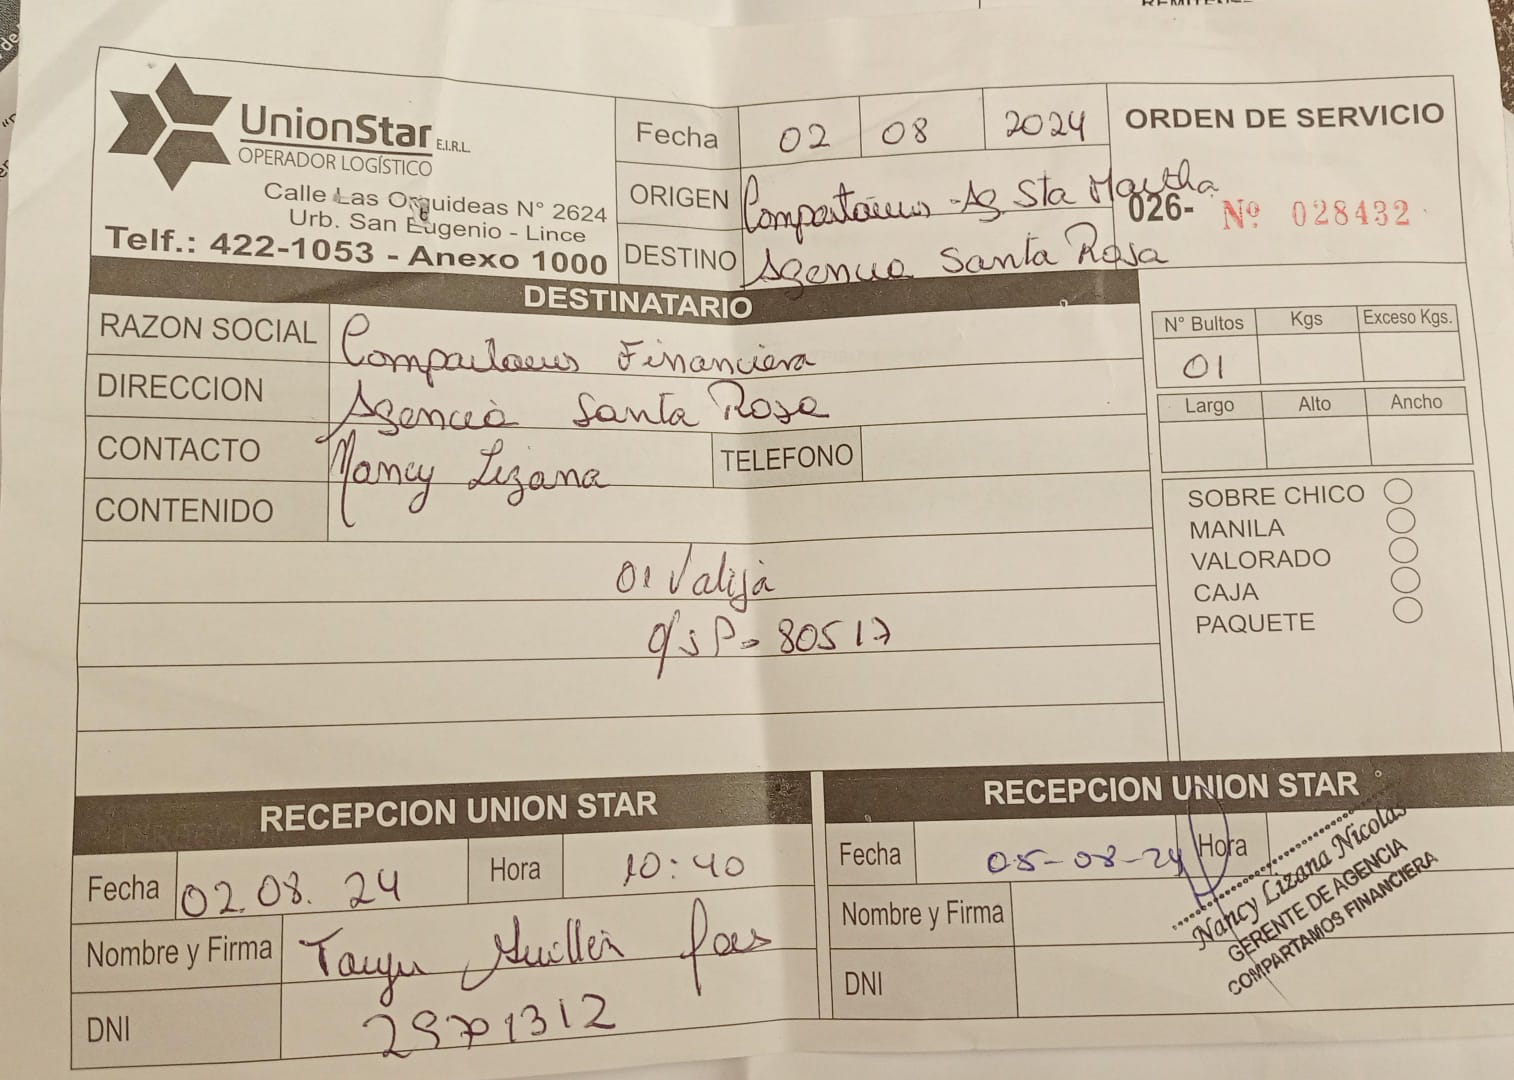 UnionStar E.I.R.L.
OPERADOR LOGÍSTICO
Calle Las Orquideas N° 2624
Urb. San Eugenio - Lince
Telf.: 422-1053 - Anexo 1000
Fecha 02 08 2024
ORIGEN Compartamos - Ag Sta Martha
DESTINO Agencia Santa Rosa
ORDEN DE SERVICIO
026- Nº 028432
DESTINATARIO
RAZON SOCIAL Compartamos Financiera
DIRECCION Agencia Santa Rosa
CONTACTO Nancy Lizana TELEFONO
CONTENIDO
01 Valija
80517
N° Bultos Kgs Exceso Kgs.
01
Largo Alto Ancho
SOBRE CHICO
MANILA
VALORADO
CAJA
PAQUETE
RECEPCION UNION STAR
Fecha 02.08.24 Hora 10:40
Nombre y Firma Guillen
DNI
RECEPCION UNION STAR
Fecha 05-08-24 Hora
Nombre y Firma
DNI
Nancy Lizana Nicolas
GERENTE DE AGENCIA
COMPARTAMOS FINANCIERA